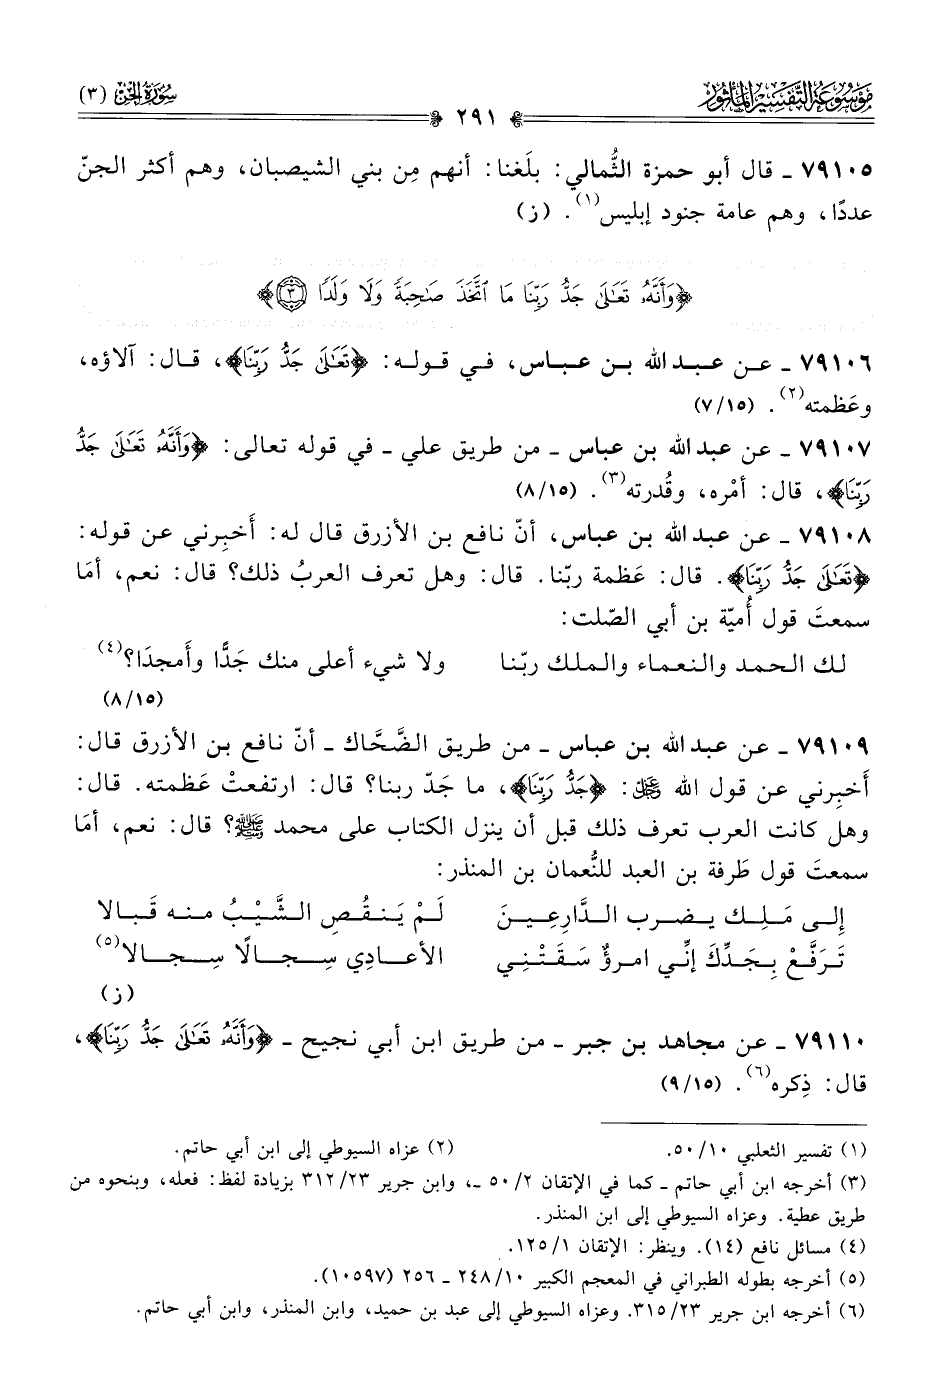 موسوعة التفسير المأثور
٢٩١
سورة الجن (٣)
٧٩١٠٥ ـ قال أبو حمزة الثُّمالي: بلَغنا: أنهم مِن بني الشيصبان، وهم أكثر الجنّ
عددًا، وهم عامة جنود إبليس(١). (ز)
﴿وَأَنَّهُۥ تَعَٰلَىٰ جَدُّ رَبِّنَا مَا ٱتَّخَذَ صَٰحِبَةً وَلَا وَلَدًا ٣﴾
٧٩١٠٦ ـ عـن عـبـد الله بـن عـبـاس، فـي قـولـه: ﴿تَعَٰلَىٰ جَدُّ رَبِّنَا﴾، قـال: آلاؤه،
وعَظمته(٢). (٧/١٥)
٧٩١٠٧ ـ عن عبد الله بن عباس ـ من طريق علي ـ في قوله تعالى: ﴿وَأَنَّهُۥ تَعَٰلَىٰ جَدُّ
رَبِّنَا﴾، قال: أمْره، وقُدرته(٣). (٨/١٥)
٧٩١٠٨ ـ عن عبد الله بن عباس، أنّ نافع بن الأزرق قال له: أَخبِرني عن قوله:
﴿تَعَٰلَىٰ جَدُّ رَبِّنَا﴾. قال: عَظمة ربّنا. قال: وهل تعرف العربُ ذلك؟ قال: نعم، أمَا
سمعتَ قول أُميّة بن أبي الصّلت:
لك الحمد والنعماء والملك ربّنا ولا شيء أعلى منك جَدًّا وأَمجدَا؟(٤)
(٨/١٥)
٧٩١٠٩ ـ عن عبد الله بن عباس ـ من طريق الضَّحَّاك ـ أنّ نافع بن الأزرق قال:
أَخبِرني عن قول الله ﷿: ﴿جَدُّ رَبِّنَا﴾، ما جَدّ ربنا؟ قال: ارتفعتْ عَظمته. قال:
وهل كانت العرب تعرف ذلك قبل أن ينزل الكتاب على محمد ﷺ؟ قال: نعم، أمَا
سمعتَ قول طَرفة بن العبد للنُّعمان بن المنذر:
إلى مَلِك يضرب الدَّارعِينَ لَمْ يَنقُصِ الشَّيْبُ منه قَبالا
تَرَفَّعْ بِجَدِّكَ إنِّي امرؤٌ سَقَتْنِي الأعادِي سِجالًا سِجالا(٥)
(ز)
٧٩١١٠ ـ عن مجاهد بن جبر ـ من طريق ابن أبي نجيح ـ ﴿وَأَنَّهُۥ تَعَٰلَىٰ جَدُّ رَبِّنَا﴾،
قال: ذِكره(٦). (٩/١٥)
(١) تفسير الثعلبي ٥٠/١٠. (٢) عزاه السيوطي إلى ابن أبي حاتم.
(٣) أخرجه ابن أبي حاتم ـ كما في الإتقان ٥٠/٢ ـ، وابن جرير ٣١٢/٢٣ بزيادة لفظ: فعله، وبنحوه من
طريق عطية. وعزاه السيوطي إلى ابن المنذر.
(٤) مسائل نافع (١٤). وينظر: الإتقان ١٢٥/١.
(٥) أخرجه بطوله الطبراني في المعجم الكبير ٢٤٨/١٠ ـ ٢٥٦ (١٠٥٩٧).
(٦) أخرجه ابن جرير ٣١٥/٢٣. وعزاه السيوطي إلى عبد بن حميد، وابن المنذر، وابن أبي حاتم.